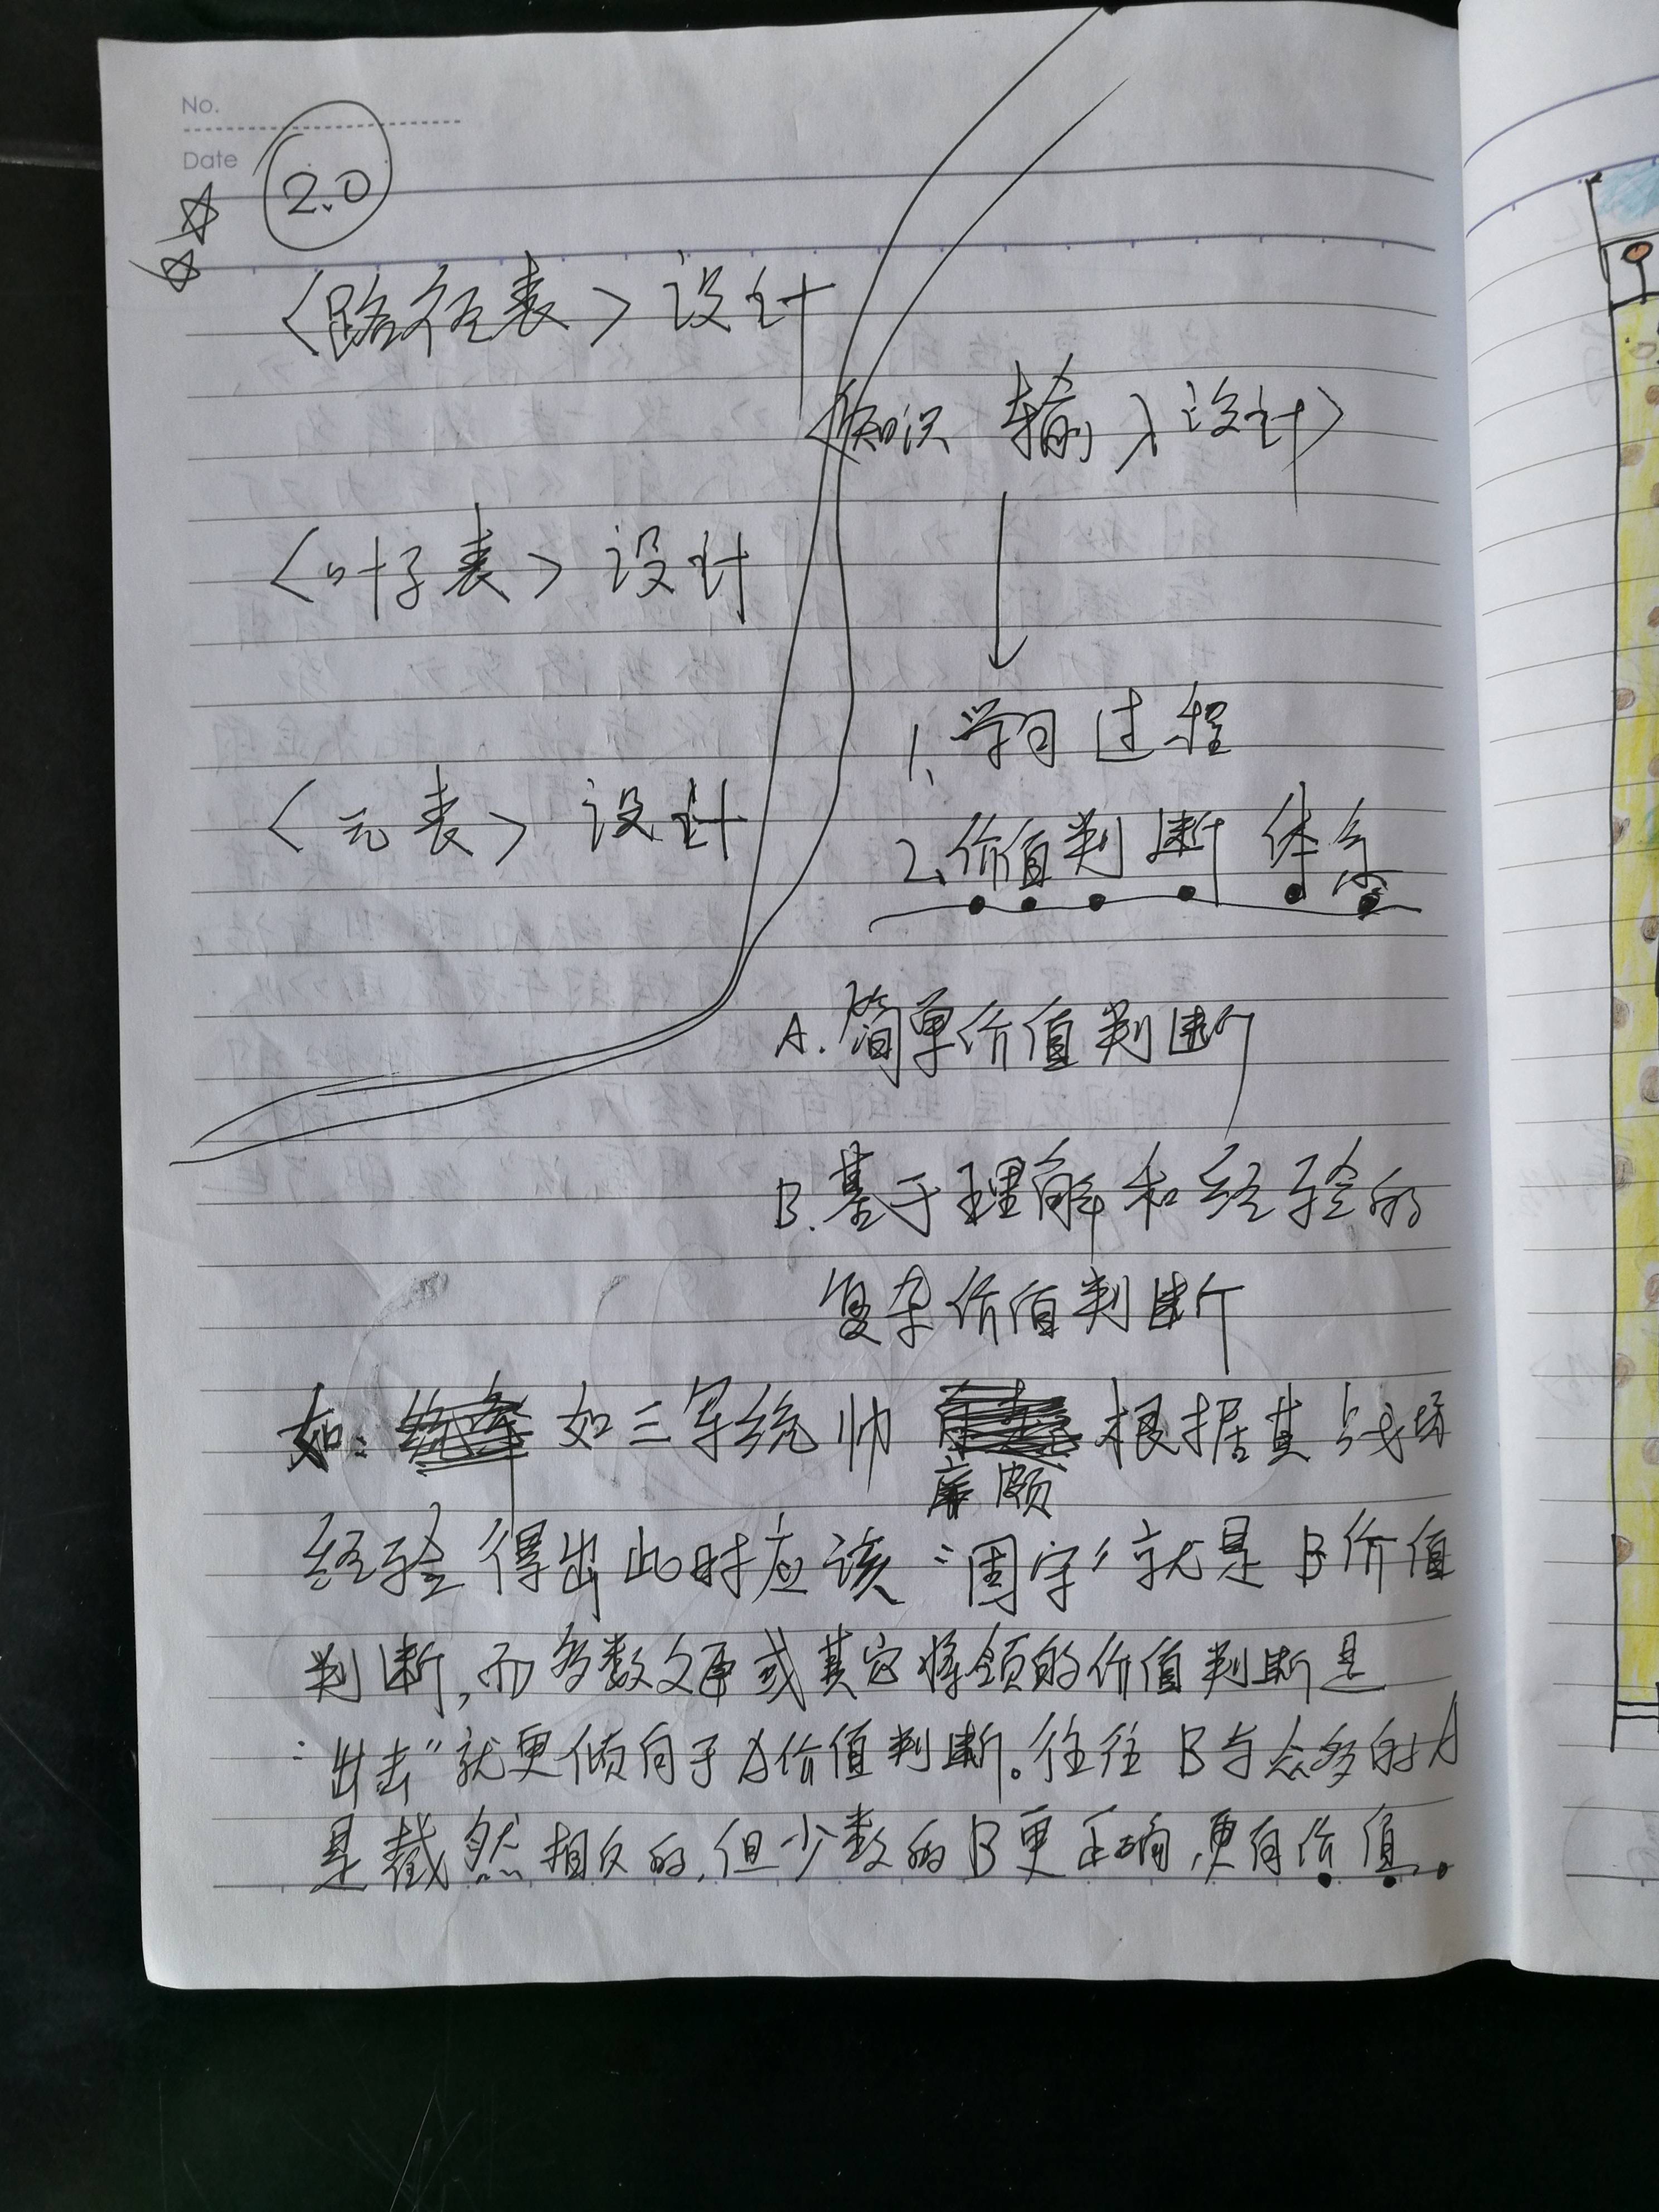 No.
Date
2.0
〈路径表〉设计
〈知识 输入设计〉
〈叶子表〉设计
1、学习过程
〈元表〉设计
2、价值判断体系
A.简单价值判断
B.基于理解和经验的
复杂价值判断
如: 如三军统帅 根据其战场
廉颇
经验得出此时应该“固守”就是B价值
判断,而多数文臣或其它将领的价值判断是
“出击”就更倾向于A价值判断。往往B与众多的A
是截然相反的,但少数的B更正确,更有价值。